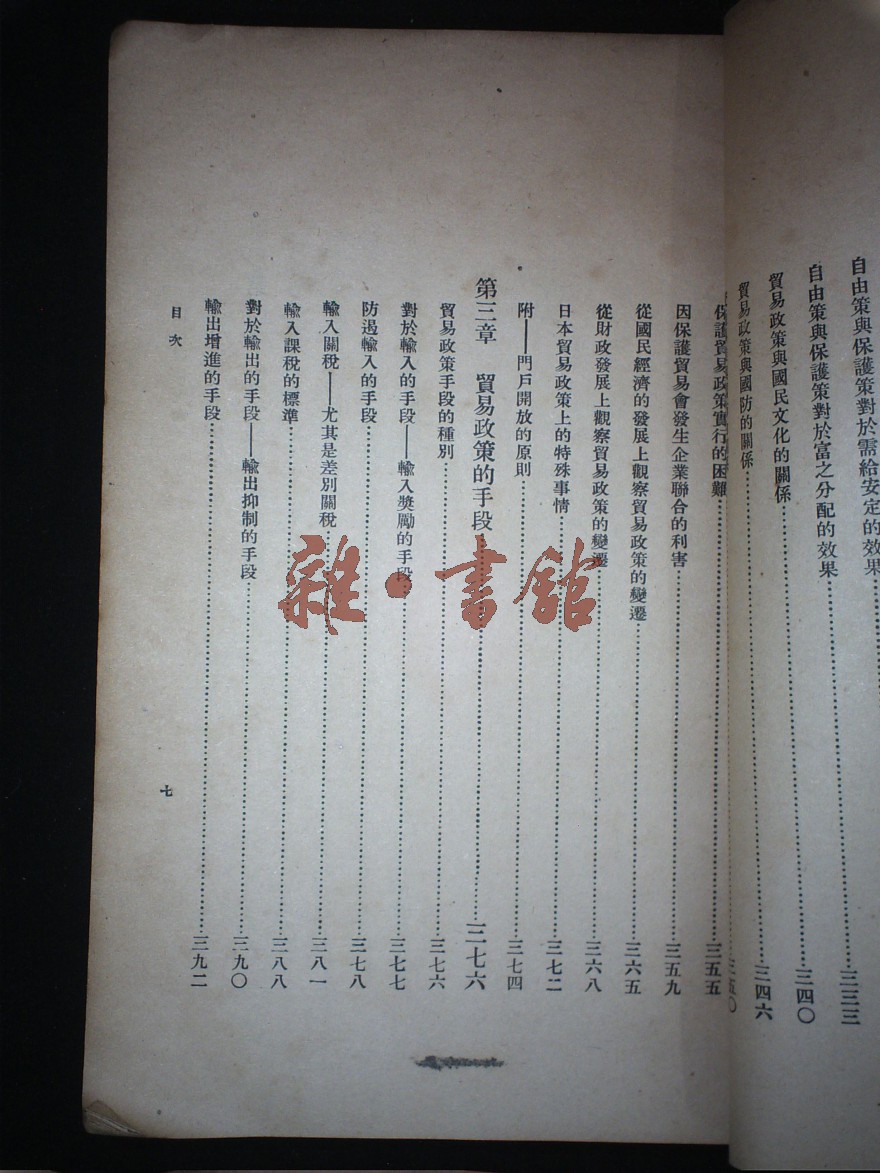 自由策與保護策對於需給安定的效果
自由策與保護策對於富之分配的效果……三三三
貿易政策與國民文化的關係……三四〇
貿易政策與國防的關係……三四六
保護貿易政策實行的困難……三五五
因保護貿易會發生企業聯合的利害……三五九
從國民經濟的發展上觀察貿易政策的變遷……三六五
從財政發展上觀察貿易政策的變遷……三六八
日本貿易政策上的特殊事情……三七二
附——門戶開放的原則……三七四
第三章 貿易政策的手段……三七六
貿易政策手段的種別……三七六
對於輸入的手段——輸入獎勵的手段……三七七
防遏輸入的手段……三七八
輸入關稅——尤其是差別關稅……三八一
輸入課稅的標準……三八八
對於輸出的手段——輸出抑制的手段……三九〇
輸出增進的手段……三九二
目次
七
雜·書館